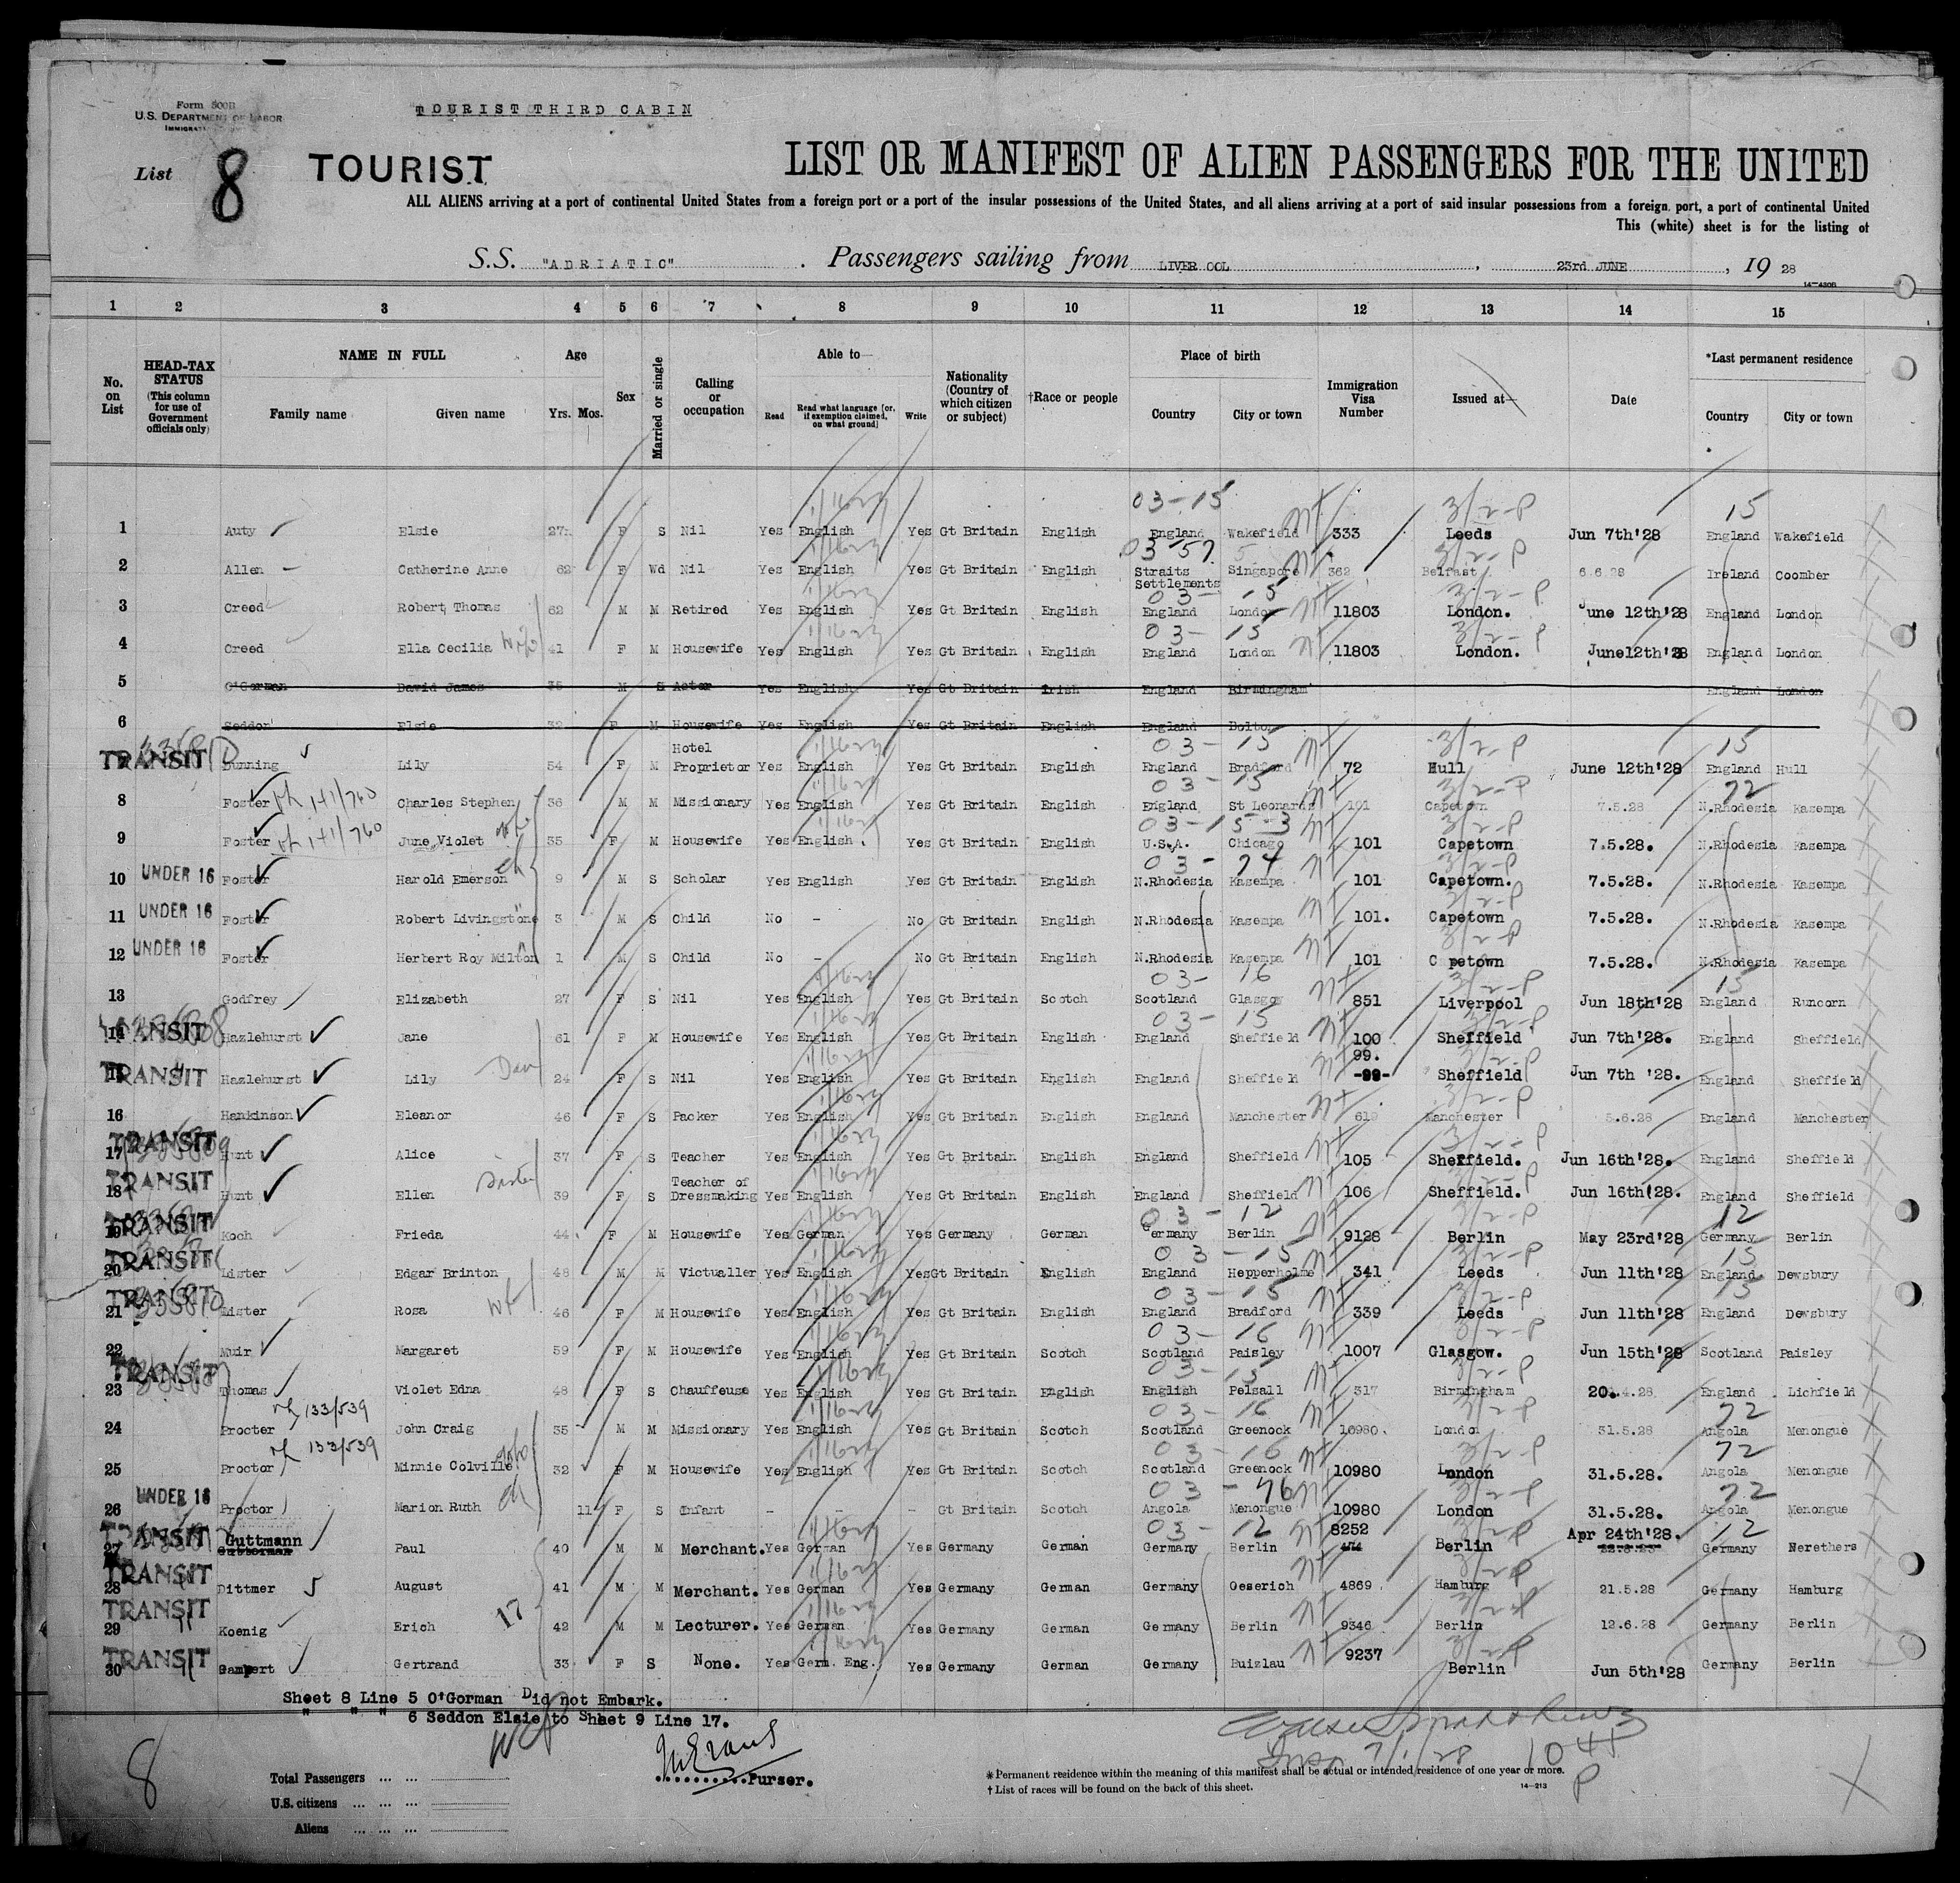 Form 500B
U.S. DEPARTMENT OF LABOR
TOURIST THIRD CABIN
List 8 TOURIST LIST OR MANIFEST OF ALIEN PASSENGERS FOR THE UNITED
ALL ALIENS arriving at a port of continental United States from a foreign port or a port of the insular possessions of the United States, and all aliens arriving at a port of said insular possessions from a foreign port, a port of continental United
This (white) sheet is for the listing of
S.S. "ADRIATIC" . Passengers sailing from LIVER OOL , 23rd JUNE , 19 28
14—430B
1 2 3 4 5 6 7 8 9 10 11 12 13 14 15
No. on List HEAD-TAX STATUS (This column for use of Government officials only) NAME IN FULL Family name Given name Age Yrs. Mos. Sex Married or single Calling or occupation Able to— Read Read what language [or, if exemption claimed, on what ground] Write Nationality (Country of which citizen or subject) †Race or people Place of birth Country City or town Immigration Visa Number Issued at— Date *Last permanent residence Country City or town
1 Auty Elsie 27 F S Nil Yes English Yes Gt Britain English England Wakefield 333 Leeds Jun 7th'28 England Wakefield
2 Allen Catherine Anne 62 F Wd Nil Yes English Yes Gt Britain English Straits Settlements Singapore 362 Belfast 6.6.28 Ireland Coomber
3 Creed Robert Thomas 62 M M Retired Yes English Yes Gt Britain English England London 11803 London. June 12th'28 England London
4 Creed Ella Cecilia wife 41 F M Housewife Yes English Yes Gt Britain English England London 11803 London. June12th'28 England London
5 O'Gorman David James 35 M S Actor Yes English Yes Gt Britain Irish England Birmingham England London
6 Seddon Elsie 32 F M Housewife Yes English Yes Gt Britain English England Bolton
TRANSIT Dunning Lily 54 F M Hotel Proprietor Yes English Yes Gt Britain English England Bradford 72 Hull June 12th'28 England Hull
8 Foster 141/760 Charles Stephen 36 M M Missionary Yes English Yes Gt Britain English England St Leonards 101 Capetown 7.5.28 N.Rhodesia Kasempa
9 Foster 141/760 June Violet wife 35 F M Housewife Yes English Yes Gt Britain English U.S.A. Chicago 101 Capetown 7.5.28. N.Rhodesia Kasempa
10 UNDER 16 Foster Harold Emerson ch 9 M S Scholar Yes English Yes Gt Britain English N.Rhodesia Kasempa 101 Capetown. 7.5.28. N.Rhodesia Kasempa
11 UNDER 16 Foster Robert Livingstone 3 M S Child No - No Gt Britain English N.Rhodesia Kasempa 101. Capetown 7.5.28. N.Rhodesia Kasempa
12 UNDER 16 Foster Herbert Roy Milton 1 M S Child No - No Gt Britain English N.Rhodesia Kasempa 101 C petown 7.5.28. N.Rhodesia Kasempa
13 Godfrey Elizabeth 27 F S Nil Yes English Yes Gt Britain Scotch Scotland Glasgow 851 Liverpool Jun 18th'28 England Runcorn
14 TRANSIT Hazlehurst Jane 61 F M Housewife Yes English Yes Gt Britain English England Sheffield 100 Sheffield Jun 7th'28. England Sheffield
15 TRANSIT Hazlehurst Lily Dau 24 F S Nil Yes English Yes Gt Britain English England Sheffield 99. -99- Sheffield Jun 7th '28. England Sheffield
16 Hankinson Eleanor 46 F S Packer Yes English Yes Gt Britain English England Manchester 619 Manchester 5.6.28 England Manchester
17 TRANSIT Hunt Alice 37 F S Teacher Yes English Yes Gt Britain English England Sheffield 105 Sheffield. Jun 16th'28. England Sheffield
18 TRANSIT Hunt Ellen Sister 39 F S Teacher of Dressmaking Yes English Yes Gt Britain English England Sheffield 106 Sheffield. Jun 16th'28. England Sheffield
19 TRANSIT Koch Frieda 44 F M Housewife Yes German Yes Germany German Germany Berlin 9128 Berlin May 23rd'28 Germany Berlin
20 TRANSIT Lister Edgar Brinton 48 M M Victualler Yes English Yes Gt Britain English England Hepperholme 341 Leeds Jun 11th'28 England Dewsbury
21 TRANSIT Lister Rosa wf 46 F M Housewife Yes English Yes Gt Britain English England Bradford 339 Leeds Jun 11th'28 England Dewsbury
22 Muir Margaret 59 F M Housewife Yes English Yes Gt Britain Scotch Scotland Paisley 1007 Glasgow. Jun 15th'28 Scotland Paisley
23 TRANSIT Thomas Violet Edna 48 F S Chauffeuse Yes English Yes Gt Britain English English Pelsall 317 Birmingham 20.4.28 England Lichfield
24 Procter 133/539 John Craig 35 M M Missionary Yes English Yes Gt Britain Scotch Scotland Greenock 10980. London 31.5.28 Angola Menongue
25 Proctor 133/539 Minnie Colville 32 F M Housewife Yes English Yes Gt Britain Scotch Scotland Greenock 10980 London 31.5.28. Angola Menongue
26 UNDER 16 Proctor Marion Ruth ch 11 F S Infant - - - Gt Britain Scotch Angola Menongue 10980 London 31.5.28. Angola Menongue
27 TRANSIT Guttmann Paul 40 M M Merchant. Yes German Yes Germany German Germany Berlin 8252 Berlin Apr 24th'28. Germany Nerethers
28 TRANSIT Dittmer August 41 M M Merchant. Yes German Yes Germany German Germany Oeserich 4869 Hamburg 21.5.28 Germany Hamburg
29 TRANSIT Koenig Erich 17 42 M M Lecturer. Yes German Yes Germany German Germany Berlin 9346 Berlin 12.6.28 Germany Berlin
30 TRANSIT Gampert Gertrand 33 F S None. Yes Germ. Eng. Yes Germany German Germany Buizlau 9237 Berlin Jun 5th'28 Germany Berlin
Sheet 8 Line 5 O'Gorman Did not Embark.
" " " 6 Seddon Elsie to Sheet 9 Line 17.
8
Total Passengers ... ...
U.S. citizens ... ... ...
Aliens ... ... ...
Purser.
7/1/28
*Permanent residence within the meaning of this manifest shall be actual or intended residence of one year or more.
† List of races will be found on the back of this sheet.
14—213